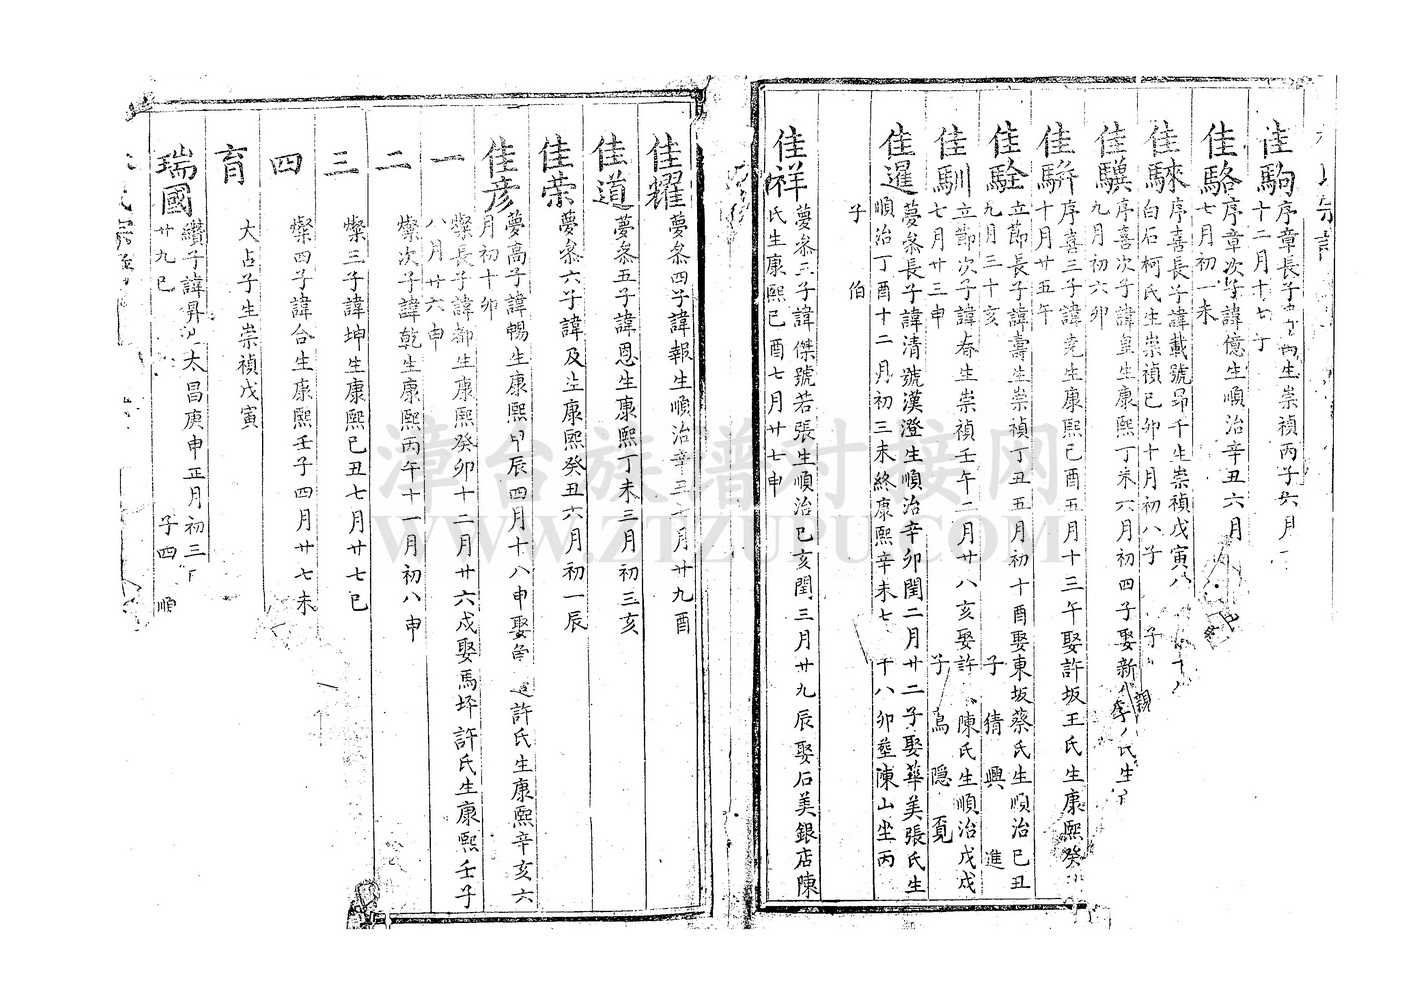 佳駒
序章長子
生崇禎丙子六月
十二月十七丁
佳駱
序章次子諱億生順治辛丑六月
七月初一未
佳騋
序喜長子諱載號昂千生崇禎戊寅八
白石柯氏生崇禎己卯十月初八子 子
佳驥
序喜次子諱皇生康熙丁未六月初四子娶新
九月初六卯
佳騈
序喜三子諱堯生康熙己酉五月十三午娶許坂王氏生康熙癸
十月廿五午
佳駩
立節長子諱壽生崇禎丁丑五月初十酉娶東坂蔡氏生順治己丑
九月三十亥 子 倩 興 進
佳馴
立節次子諱春生崇禎壬午二月廿八亥娶許 陳氏生順治戊戌
七月廿三申 子 鳥 隱 覔
佳暹
夢叅長子諱清號漢澄生順治辛卯閏二月廿二子娶華美張氏生
順治丁酉十二月初三未終康熙辛未七 十八卯塟陳山坐丙
子 伯
佳祥
夢叅三子諱傑號若張生順治己亥閏三月廿九辰娶石美銀店陳
氏生康熙己酉七月廿七申
佳耀
夢叅四子諱報生順治辛丑 月廿九酉
佳道
夢叅五子諱恩生康熙丁未三月初三亥
佳榮
夢叅六子諱及生康熙癸丑六月初一辰
佳彥
夢高子諱暢生康熙甲辰四月十八申娶 許氏生康熙辛亥六
月初十卯
一
燦長子諱都生康熙癸卯十二月廿六戌娶馬坪許氏生康熙壬子
八月廿六申
二
燦次子諱乾生康熙丙午十一月初八申
三
燦三子諱坤生康熙己丑七月廿七巳
四
燦四子諱合生康熙壬子四月廿七未
育
大占子生崇禎戊寅
瑞國
纘子諱昇 太昌庚申正月初三
廿九巳 子四 順
漳台族譜对接网
WWW.ZTZUPU.COM